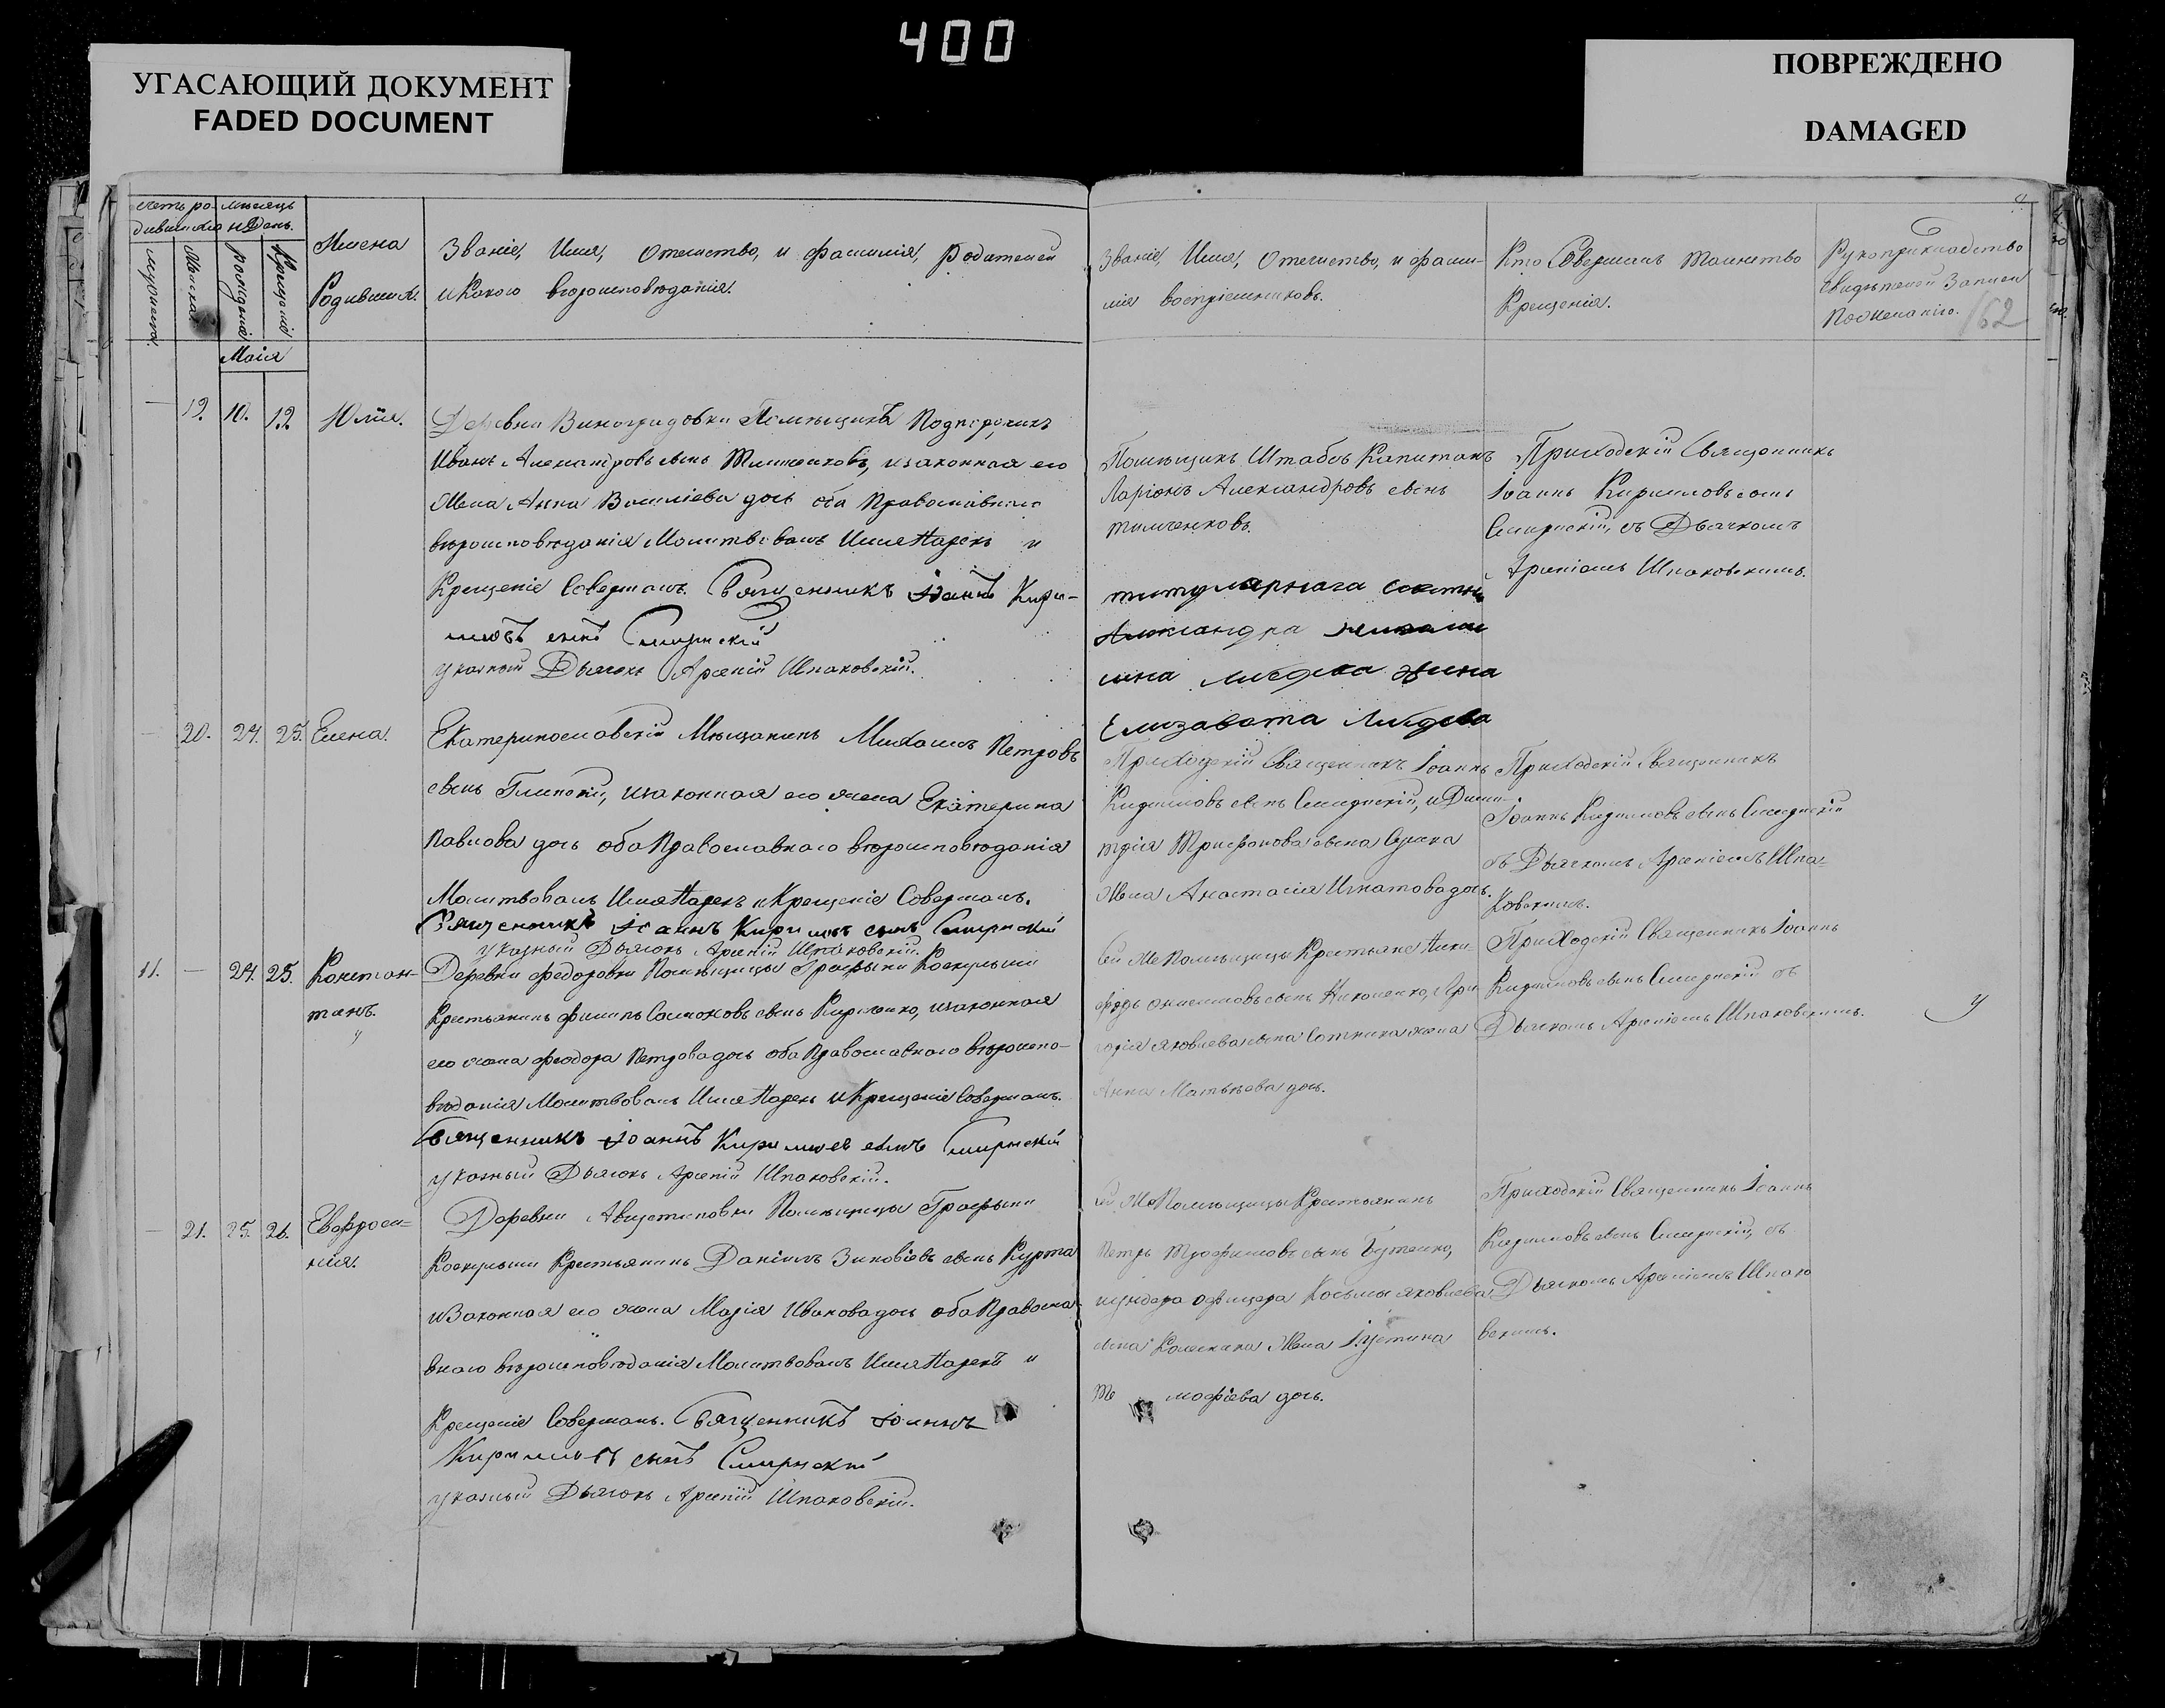 400
УГАСАЮЩИЙ ДОКУМЕНТ
FADED DOCUMENT
ПОВРЕЖДЕНО
DAMAGED
счетъ ро-
дившихся
мѣсяцъ
и День.
мужеска.
Женска.
рожденія
Крещенія
Имена
Родивших.
Званіе, Имя, Отечество, и фамилія, Родителей
и Какого вѣроисповѣданія.
Званіе Имя, Отечество, и фами-
лія воспріемниковъ.
Кто Совершалъ таинство
Крещенія.
Рукоприкладство
Свидѣтелей Записи
По желанію.
162
Маія
19. 10. 12. Юлія.
Деревни Виноградовки Помѣщикъ Подпоручикъ
Иванъ Александровъ сынъ Тимченковъ, изаконная его
Жена Анна Василіева дочь оба Православнаго
вѣроисповѣданія Молитвовалъ Имя Нарекъ и
Крещеніе Совершалъ. Священникъ Іоаннъ Кири-
ловъ сынъ Смирнскій
указный Дьячокъ Арсеній Шпаковскій.
Помѣщикъ Штабсъ Капитанъ
Ларіонъ Александровъ сынъ
тимченковъ.
титулярнага
Александра
жина
Елизавета
Приходскій Священникъ
Іоаннъ Кириловъ сынъ
Смирнскій, съ Дьячкомъ
Арсеніемъ Шпаковскимъ.
20. 24. 25. Елена.
Екатеринославскій Мѣщанинъ Михаилъ Петровъ
сынъ изаконная его жена Екатерина
Павлова дочь оба Православнаго вѣроисповѣданія
Молитвовалъ Имя Нарекъ и Крещеніе Совершалъ.
Священникъ Іоаннъ Кириловъ сынъ Смирнскій
указный Дьячокъ Арсеній Шпаковскій.
Приходскій Священникъ Іоаннъ
Кириловъ сынъ Смирнскій, и Дими-
трія Трифонова сына
Жена Анастасія Игнатова дочь.
Приходскій Священникъ
Іоаннъ Кириловъ сынъ Смирнскій
съ Дьячкомъ Арсеніемъ Шпа-
ковскимъ.
11. — 24. 25. Констан-
тинъ.
Деревни Федоровки Помѣщицы Графыни
Крестьянинъ филипъ сынъ изаконная
его жена феодора Петрова дочь оба Православнаго вѣроиспо-
вѣданія Молитвовалъ Имя Нарекъ и Крещеніе Совершалъ.
Священникъ Іоаннъ Кириловъ сынъ Смирнскій
указный Дьячокъ Арсеній Шпаковскій.
Сей же Помѣщицы Крестьяне Ники-
форъ сынъ Гри-
горія яковлева сына Сотника жена
Анна Матвѣева дочь.
Приходскій Священникъ Іоаннъ
Кириловъ сынъ Смирнскій съ
Дьячкомъ Арсеніемъ Шпаковскимъ.
21. 25. 26. Евфроси-
нія.
Деревни Августиновки Помѣщицы Графыни
Крестьянинъ Даніилъ Зиновіевъ сынъ Курта
и Законная его жена Марія Иванова дочь оба Правосла-
внаго вѣроисповѣданія Молитвовалъ Имя Нарекъ и
Крещеніе Совершалъ. Священникъ Іоаннъ
Кириловъ сынъ Смирнскій
указный Дьячокъ Арсеній Шпаковскій.
Сей же Помѣщицы Крестьянинъ
Петръ Трофимовъ сынъ Бутенко,
офицера Косьмы яковлева
сына Жена Іустина
Ти мофіева дочь.
Приходскій Священникъ Іоаннъ
Кириловъ сынъ Смирнскій, съ
Дьячкомъ Арсеніемъ Шпако
вскимъ.